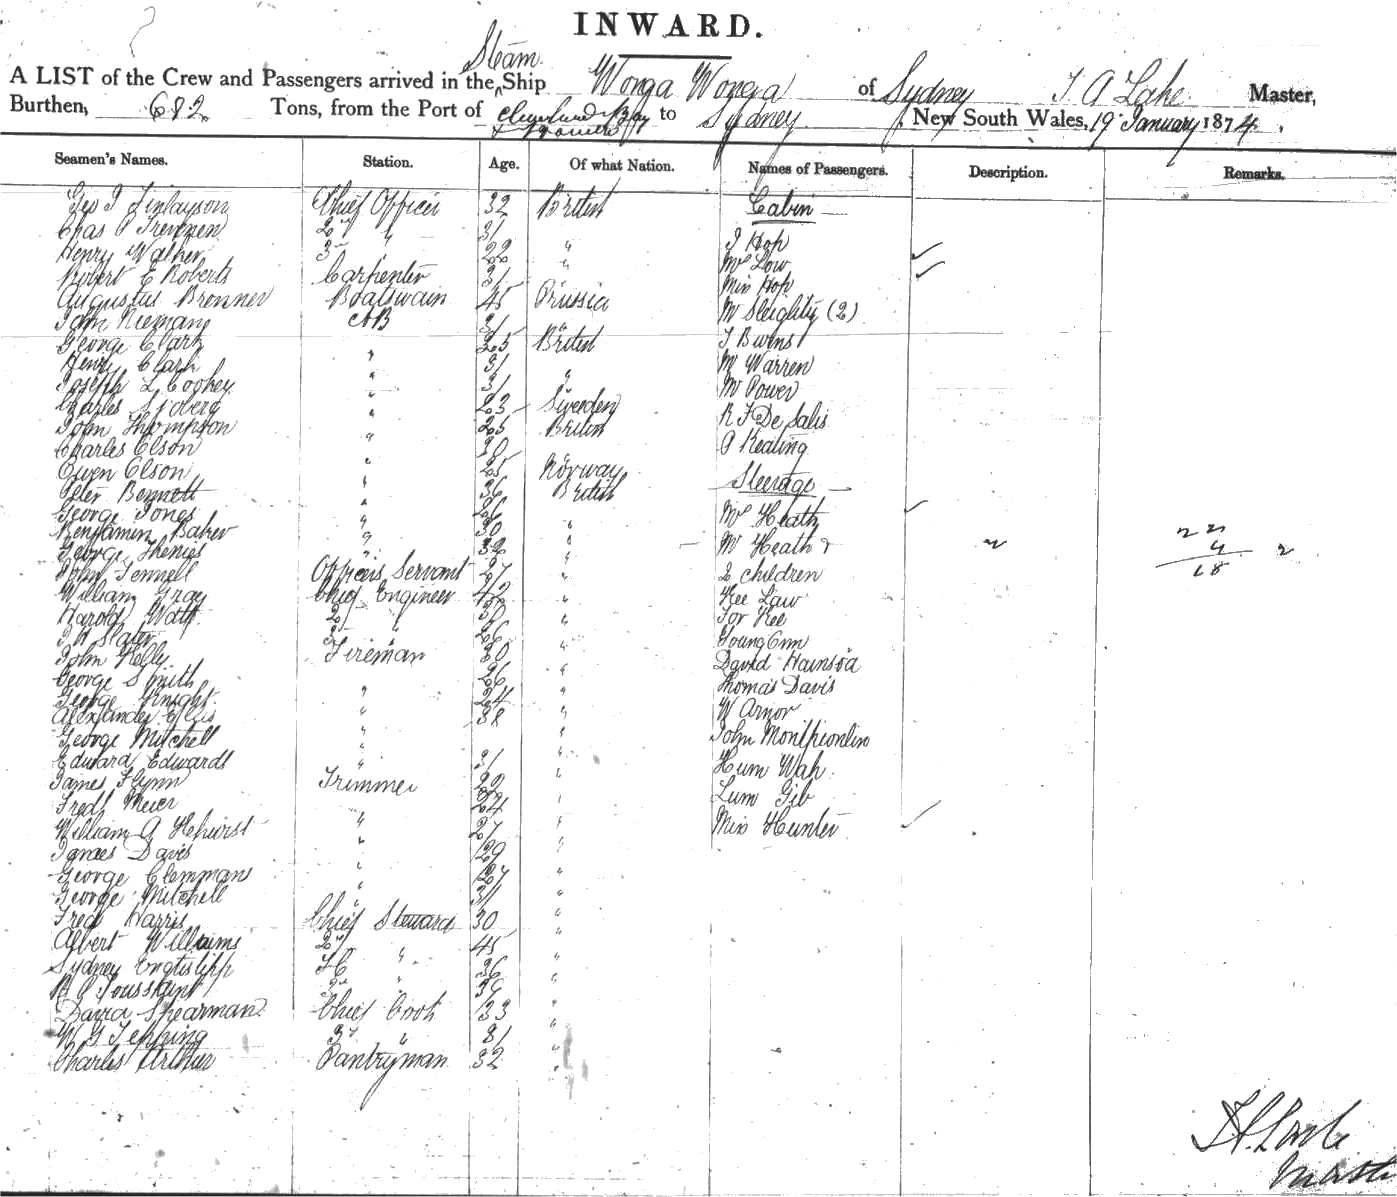 INWARD.
Steam
A LIST of the Crew and Passengers arrived in the Ship Wonga Wonga of Sydney J A Lake Master,
Burthen, 682 Tons, from the Port of Cleveland Bay to Sydney New South Wales, 19 January 1874.
Seamen's Names. Station. Age. Of what Nation. Names of Passengers. Description. Remarks.
Geo J Finlayson Chief Officer 32 British Cabin
Chas P 2nd " 31
Henry Walker 3rd " 22 " J Hop
Robert E Roberts Carpenter 31 " Mrs Low
Augustus Brenner Boatswain 45 Prussia Miss Hop
John Nieman AB 31 " Mr Sleighty (2)
George Clark " 25 British J Burns
Henry Clark " 31 Mr Warren
Joseph L Cookey " 31 " Mr Power
Charles Sjoberg " 23 Sweden R F De Salis
John Thompson " 25 British P Keating
Charles Olson " 30
Owen Olson " 25 Norway Steerage
Peter Bennett " 36 British
George Jones " 26 Mrs Heath
Benjamin Baker " 30 " Mr Heath & 22
George " 32 " 2 children 4 2
John Fennell Officers Servant 27 " Kee Law 18
William Gray Chief Engineer 42 " For Kee
Harold Watt 2d " 30 "
J W Slater 3 " 26 " Young Onn
John Kelly Fireman 30 " David
George Smith 26 " Thomas Davis
George Knight " 24 " W Arnor
Alexander Ellis " 38 " John
George Mitchell " "
Edward Edwards " 31 " Hum Wah
James Flynn Trimmer 22 " Lum Gib
Fredk Meier 24 "
William A " 27 " Miss Hunter
James Davis " 29 "
George Clemmans " 27 "
George Mitchell " 31 "
Fred Harris Chief Steward 30 "
Albert Williams 2d " 45 "
Sydney " 36 "
R P Toussaint " "
David Spearman Chief Cook 33 "
W G Tepping " 31 "
Charles Arthur Pantryman 32 "
Master